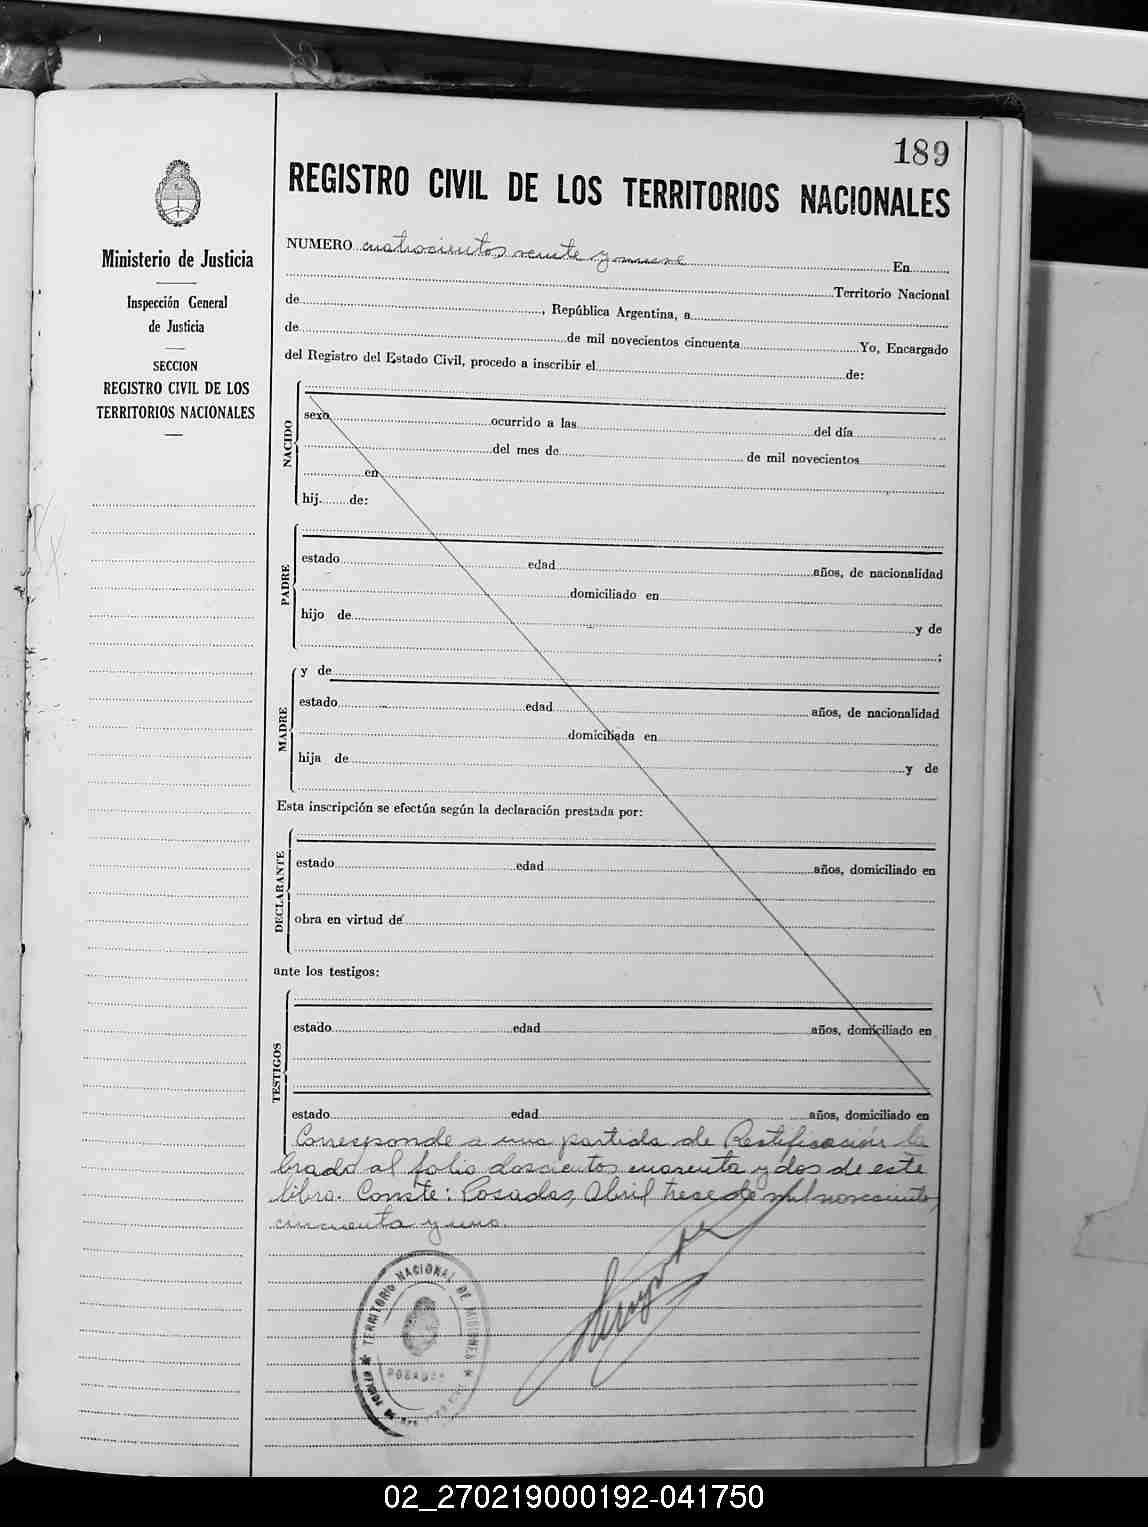 189
REGISTRO CIVIL DE LOS TERRITORIOS NACIONALES
Ministerio de Justicia
Inspección General
de Justicia
SECCION
REGISTRO CIVIL DE LOS
TERRITORIOS NACIONALES
NUMERO cuatrocientos veinte y nueve En
Territorio Nacional
de , República Argentina, a
de de mil novecientos cincuenta Yo, Encargado
del Registro del Estado Civil, procedo a inscribir el de:
NACIDO
sexo ocurrido a las del día
del mes de de mil novecientos
en
hij de:
PADRE
estado edad años, de nacionalidad
domiciliado en
hijo de y de
;
MADRE
y de
estado edad años, de nacionalidad
domiciliada en
hija de y de
Esta inscripción se efectúa según la declaración prestada por:
DECLARANTE
estado edad años, domiciliado en
obra en virtud de
ante los testigos:
TESTIGOS
estado edad años, domiciliado en
estado edad años, domiciliado en
Corresponde a una partida de Rectificación la
brada al folio doscientos cuarenta y dos de este
libro. Conste: Posadas, Abril trece de mil novecientos
cincuenta y uno.
TERRITORIO NACIONAL DE MISIONES
POSADAS
02_270219000192-041750